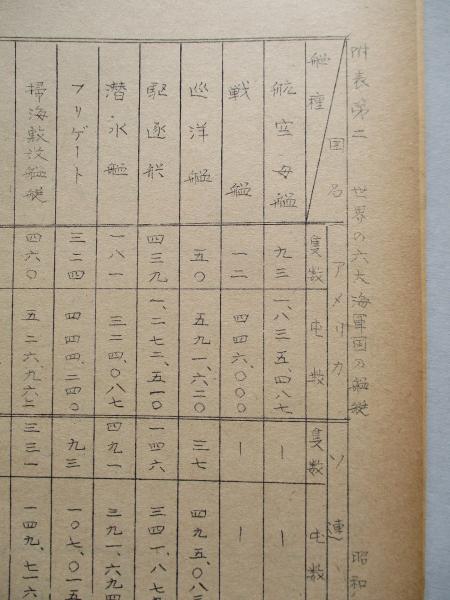 附表第二 世界の六大海軍国の艦艇 昭和
艦種 国名 アメリカ ソ連
隻数 屯数 隻数 屯数
航空母艦 九三 一、八三五、四八七 ー ー
戦艦 一二 四四六、〇〇〇 ー ー
巡洋艦 五〇 五九一、六二〇 三七 四九五、〇八
駆逐艦 四三九 一、二七二、五一〇 一四六 三四一、八七
潜水艦 一八一 三二四、〇八七 四九一 二九一、六九四
フリゲート 三二四 四四四、二四〇 九三 一〇七、〇一五
掃海敷設艦艇 四六〇 五二六、九六二 三三一 一四九、七一六